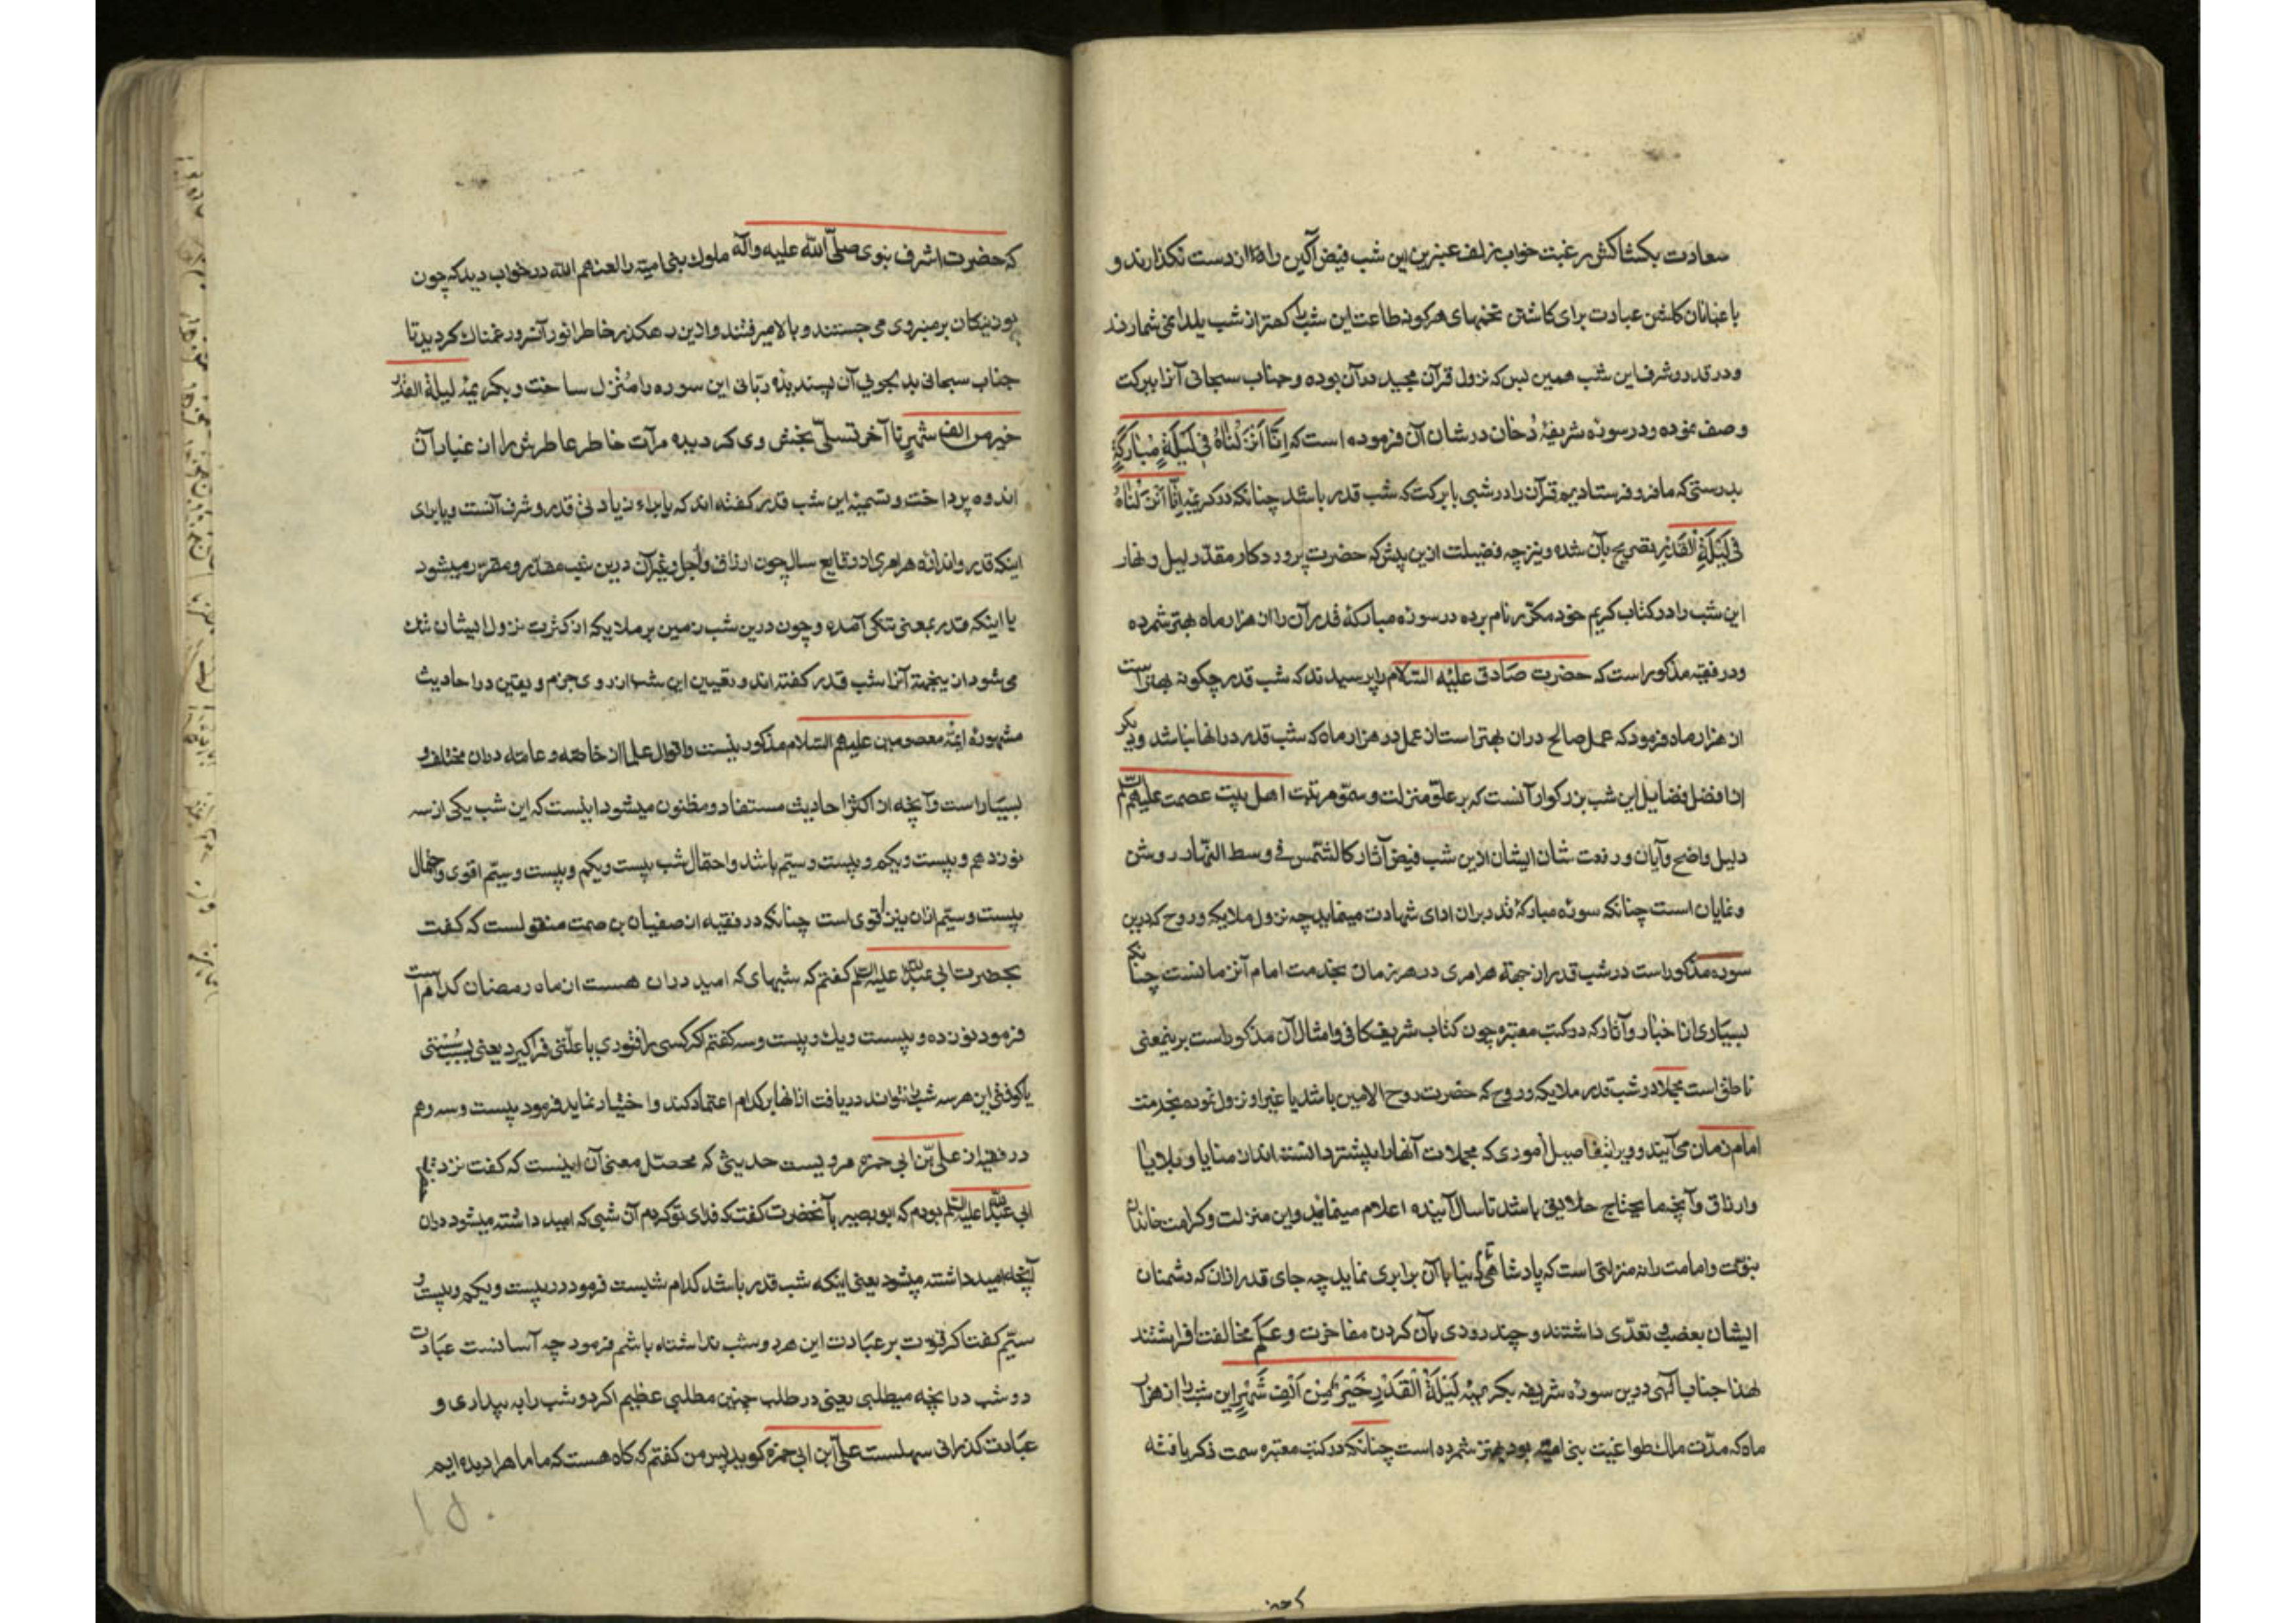 سعادت بکشاکش رغبت خواب زلف عنبرین این شب فیض آکین را از دست نکذارند و
باغبانان کلشن عبادت برای کاشتن تخمهای هرکونه طاعت این شب را کمتر از شب یلدا نمی شمارند
و در قدر و شرف این شب همین بس که نزول قرآن مجید در آن بوده و جناب سبحانی آنرا ببرکت
وصف نموده و در سورهٔ شریفهٔ دُخان در شان آن فرموده است که اِنّا اَنْزَلْناهُ فی لَیْلَةٍ مُبارَکَةٍ
بدرستی که ما فرو فرستادیم قرآن را در شبی با برکت که شب قدر باشد چنانکه در کریمهٔ اِنّا اَنْزَلْناهُ
فی لَیْلَةِ الْقَدْرِ تصریح بآن شده و نیز چه فضیلت ازین بیش که حضرت پروردکار مقدّر لیل و نهار
این شب را در کتاب کریم خود مکرّر نام برده در سورهٔ مبارکهٔ قدر آن را از هزار ماه بهتر شمرده
و در فقیه مذکور است که حضرت صادق علیه السّلام را پرسیدند که شب قدر چکونه بهتر است
از هزار ماه فرمود که عمل صالح در آن بهتر است از عمل در هزار ماه که شب قدر در آنها نباشد و دیکر
از افضل فضایل این شب بزرکوار آنست که بر علوّ منزلت و سموّ مرتبت اهل بیت عصمت علیهم السّلام
دلیل واضح و آیان و رفعت شان ایشان ازین شب فیض آثار کالشّمس فی وسط النّهار روشن
و نمایان است چنانکه سورهٔ مبارکهٔ قدر بر آن ادای شهادت مینماید چه نزول ملایکه و روح که درین
سوره مذکور است در شب قدر از جهة هر امری در هر زمان بخدمت امام آنزمانست چنانکه
بسیاری از اخبار و آثار که در کتب معتبره چون کتاب شریف کافی و امثال آن مذکور است برینمعنی
ناطق است مجملا در شب قدر ملایکه و روح که حضرت روح الامین باشد یا غیر او نزول نموده بخدمت
امام زمان می آیند و ویرا بتفاصیل أموری که مجملات آنها را پیشتر دانسته اند از منایا و بلایا
و ارزاق و آنچه ما یحتاج خلایق باشد تا سال آینده اعلام مینمایند و این منزلت و کرامت خاندان
نبوّت و امامت را نه منزلتی است که پادشاهی دنیا با آن برابری نماید چه جای قدر ازان که دشمنان
ایشان بعضی تعدّی داشتند و چند روزی بآن کردن مفاخرت و عَلَم مخالفت افراشتند
لهذا جناب الهی درین سورهٔ شریفه بکریمهٔ لَیْلَةُ الْقَدْرِ خَیْرٌ مِنْ اَلْفِ شَهْرٍ این شب را از هزار
ماه که مدّت ملک طواغیت بنی امیّه بود بهتر شمرده است چنانکه در کتب معتبره سمت ذکر یافته
که حضرت اشرف نبوی صلّی الله علیه وآله ملوک بنی امیّة را لعنهم الله در خواب دید که چون
بوزنیکان بر منبر وی می جستند و بالا میرفتند و ازین رهکذر خاطر انور آنسرور غمناک کردید تا
جناب سبحانی بدلجویی آن پسندیدهٔ ربّانی این سوره را مُنزل ساخت و بکریمهٔ لیلة القدر
خیر من الف شهرٍ تا آخر تسلّی بخش وی کردیده مرآت خاطر عاطرش را از غبار آن
اندوه پرداخت و تسمیهٔ این شب قدر کفته اند که یا براء زیادتی قدر و شرف آنست و یا برای
اینکه قدر و اندازه هر امری از وقایع سال چون ارزاق و آجال و غیر آن درین شب مقدّر و مقرّر میشود
یا اینکه قدر بمعنی تنکی آمده و چون درین شب زمین بر ملایکه از کثرت نزول ایشان تنک
می شود ازینجهة آنرا شب قدر کفته اند و تعیین این شب از روی جزم و یقین در احادیث
مشهورهٔ ائمّهٔ معصومین علیهم السّلام مذکور نیست و اقوال علما از خاصّه و عامّه در آن مختلف و
بسیار است و آنچه از اکثر احادیث مستفاد و مظنون میشود اینست که این شب یکی از سه
نوزدهم و بیست و یکم و بیست و سیّم باشد و احتمال شب بیست و یکم و بیست و سیّم اقوی و احتمال
بیست و سیّم ازان نیز اقوی است چنانکه در فقیه از صفیان بن صمت منقولست که کفت
بحضرت ابی عبدالله علیه السّلم کفتم که شبهای که امید در ان هست از ماه رمضان کدام است
فرمود نوزده و بیست و یک و بیست و سه کفتم اکر کسی را فتوری یا علّتی فراکیرد یعنی بسبب سستی
یا کوفتی این هر سه شب را نتواند دریافت ازانها بر کدام اعتماد کند و اختیار نماید فرمود بیست و سه و هم
در فقیه از علیّ بن ابی حمزه مرویست حدیثی که محصّل معنی آن اینست که کفت نزد حضرت
ابی عبدالله علیه السّلم بودم که ابو بصیر بآنحضرت کفت که فدای تو کردم آن شبی که امید داشته میشود دران
آنچه امید داشته میشود یعنی اینکه شب قدر باشد کدام شبست فرمود در بیست و یکم و بیست و
سیّم کفت اکر قوّت بر عبادت این هر دو شب نداشته باشم فرمود چه آسانست عبادت
دو شب در آنچه میطلبی یعنی در طلب چنین مطلبی عظیم اکر دو شب را به بیداری و
عبادت کذرانی سهلست علیّ ابن ابی حمزه کوید پس من کفتم که کاه هست که ما ماه را دیده ایم